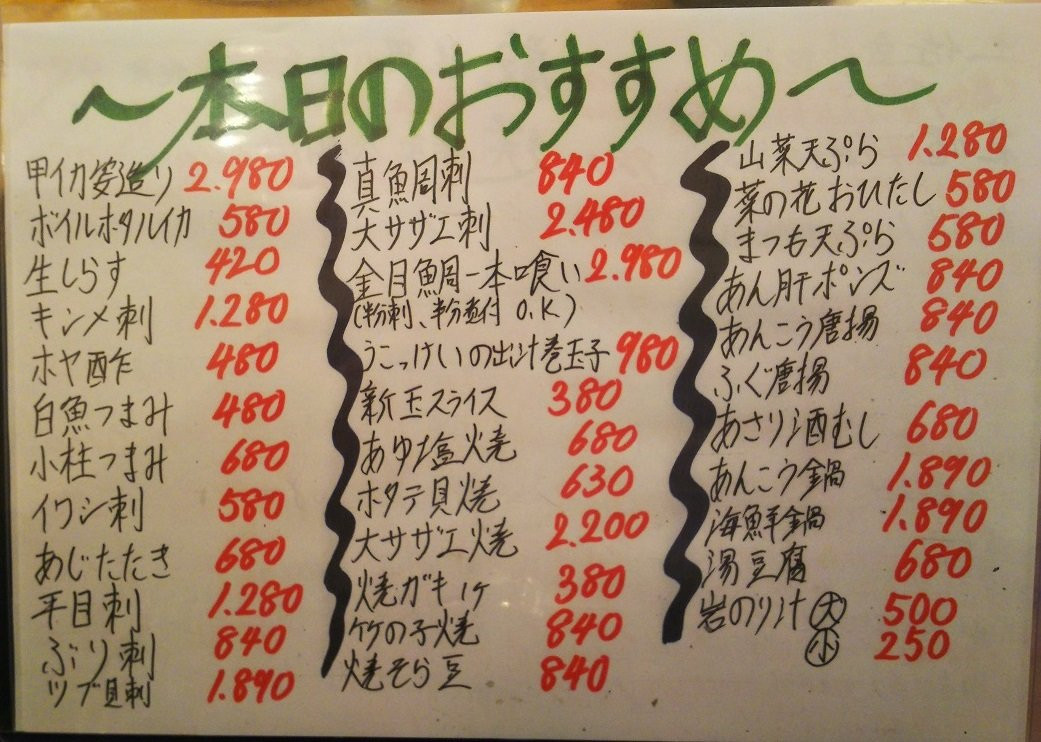 〜本日のおすすめ〜
甲イカ姿造り 2.980
ボイルホタルイカ 580
生しらす 420
キンメ刺 1.280
ホヤ酢 480
白魚つまみ 480
小柱つまみ 680
イワシ刺 580
あじたたき 680
平目刺 1.280
ぶり刺 840
ツブ貝刺 1.890
真鯛刺 840
大サザエ刺 2.480
金目鯛一本喰い 2.980
(半分刺、半分煮付 O.K)
うこっけいの出汁巻玉子 980
新玉スライス 380
あゆ塩焼 680
ホタテ貝焼 630
大サザエ焼 2.200
焼ガキ1ヶ 380
竹の子焼 840
焼そら豆 840
山菜天ぷら 1.280
菜の花おひたし 580
まつも天ぷら 580
あん肝ポンズ 840
あんこう唐揚 840
ふぐ唐揚 840
あさり酒むし 680
あんこう鍋 1.890
海鮮鍋 1.890
湯豆腐 680
岩のり汁 大 500
小 250